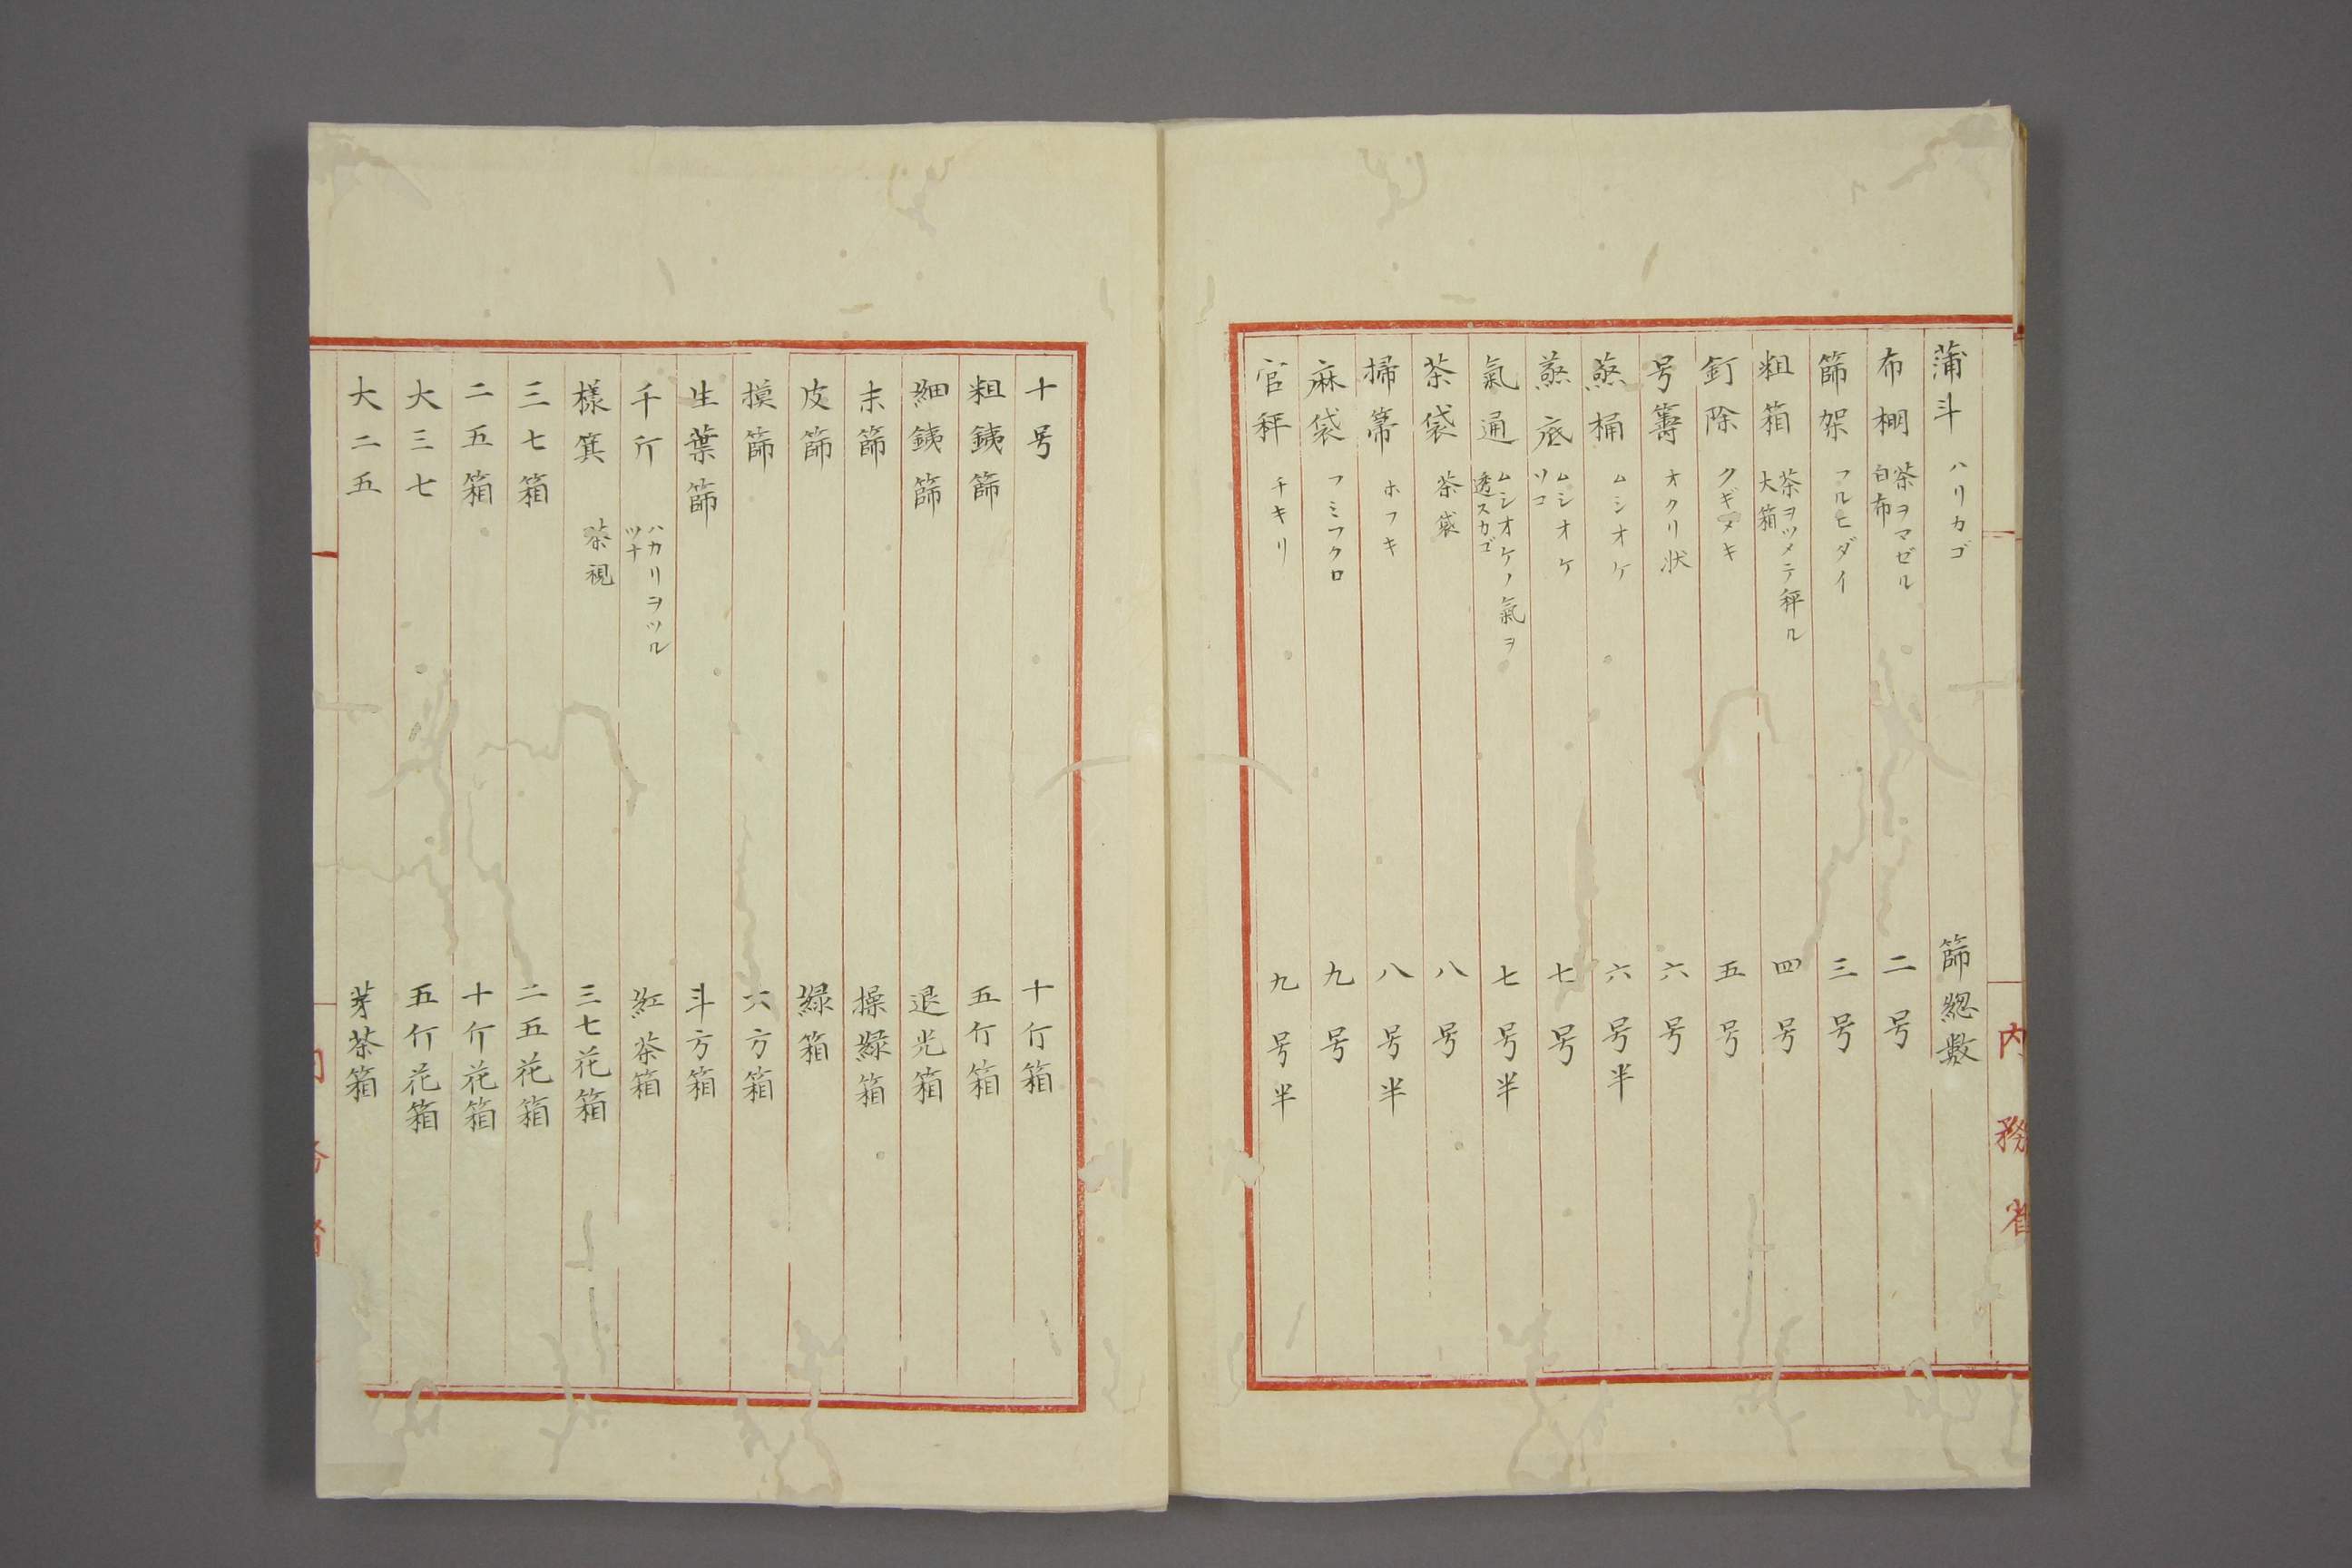 内務省
蒲斗 ハリカゴ
布棚 茶ヲマゼル
白布
篩架 フルヒダイ
粗箱 茶ヲツメテ秤ル
大箱
釘除 クギヌキ
号籌 オクリ状
蒸桶 ムシオケ
蒸底 ムシオケ
ソコ
氣通 ムシオケノ氣ヲ
透スカゴ
茶袋 茶袋
掃箒 ホフキ
麻袋 フミフクロ
官秤 チキリ
篩總數
二号
三号
四号
五号
六号
六号半
七号
七号半
八号
八号半
九号
九号半
十号
粗銕篩
細銕篩
末篩
皮篩
摸篩
生葉篩
千斤 ハカリヲツル
ツナ
樣箕 茶視
三七箱
二五箱
大三七
大二五
十斤箱
五斤箱
退光箱
操綠箱
綠箱
六方箱
斗方箱
紅茶箱
三七花箱
二五花箱
十斤花箱
五斤花箱
芽茶箱